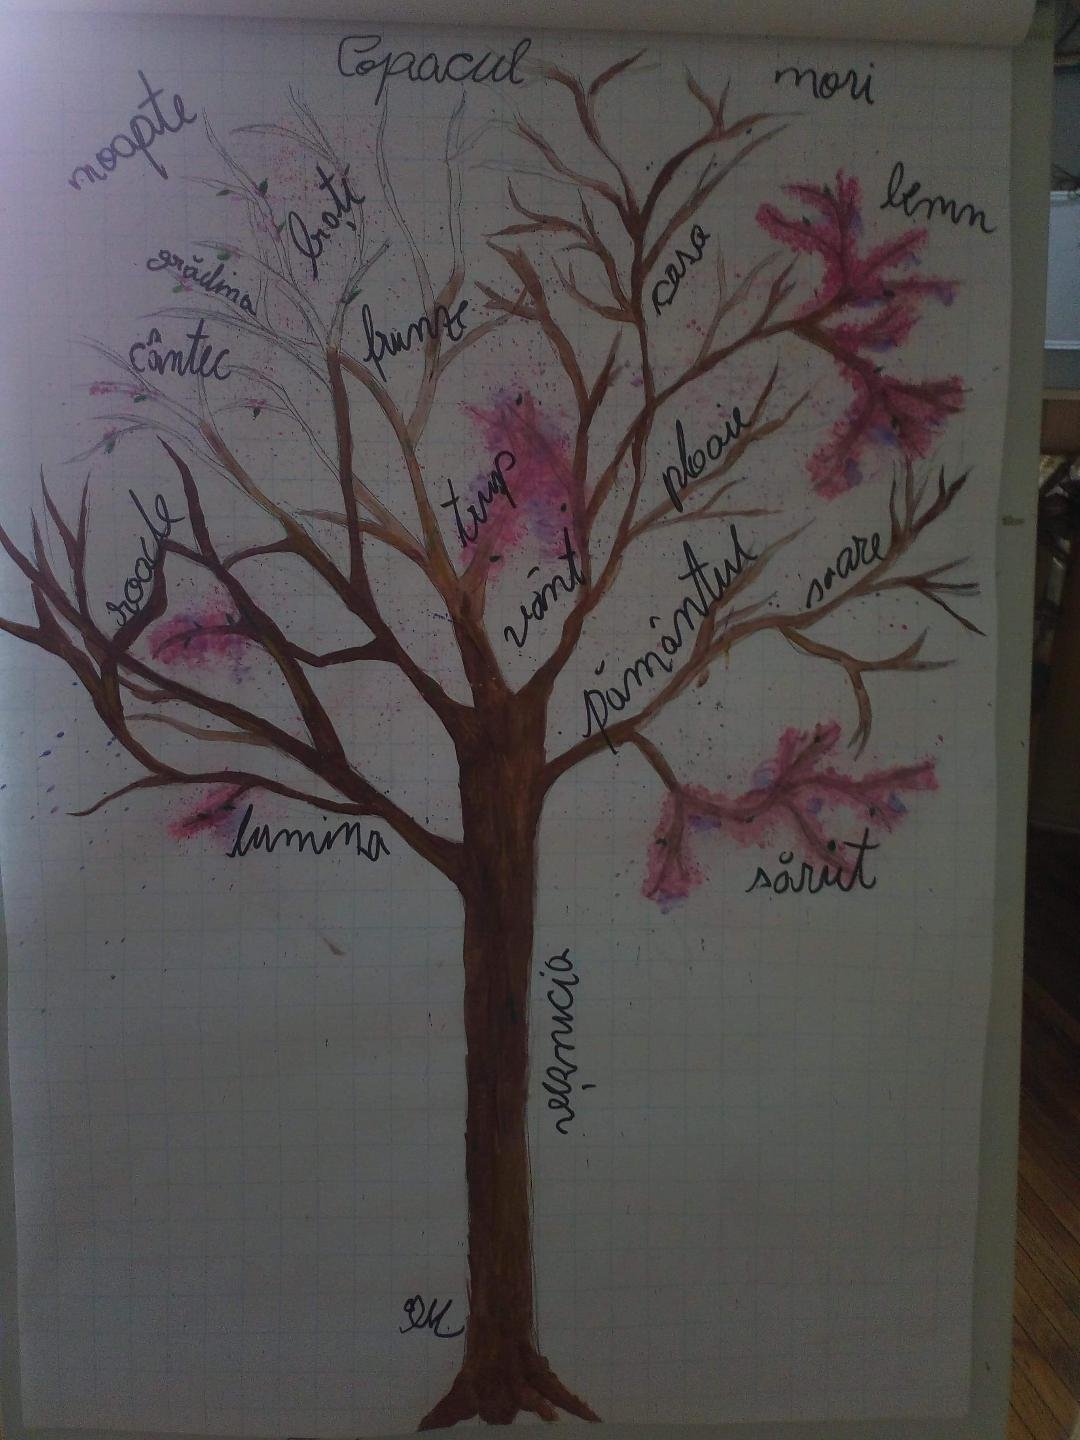 Copacul
nori
noapte
lemn
brați
casa
grădina
frunze
cântec
ploaie
trup
roade
vânt
soare
pământul
lumina
sărut
veșnicia